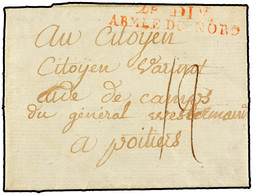 2e DIV
ARMÉE DU NORD
Au Citoyen
Citoyen Varigot
aide de camps
du général westermann
a poitiers